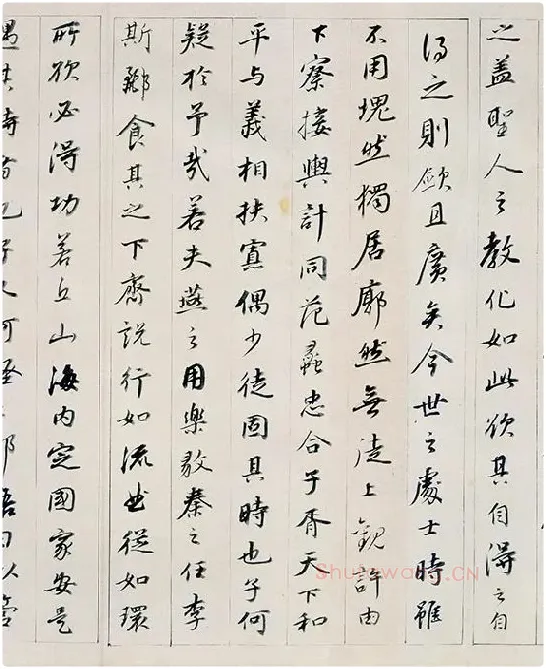 之盖聖人之教化如此欲其自得之自
得之則敏且廣矣今世之處士時雖
不用塊然獨居廓然無徒上觀許由
下察接輿計同范蠡忠合子胥天下和
平与義相扶寡偶少徒固其時也子何
疑於予哉若夫燕之用樂毅秦之任李
斯酈食其之下齊説行如流曲從如環
所欲必得功若丘山海内定國家安是
遇其時者也子又可怪之邪語曰以管
Shufawang.CN